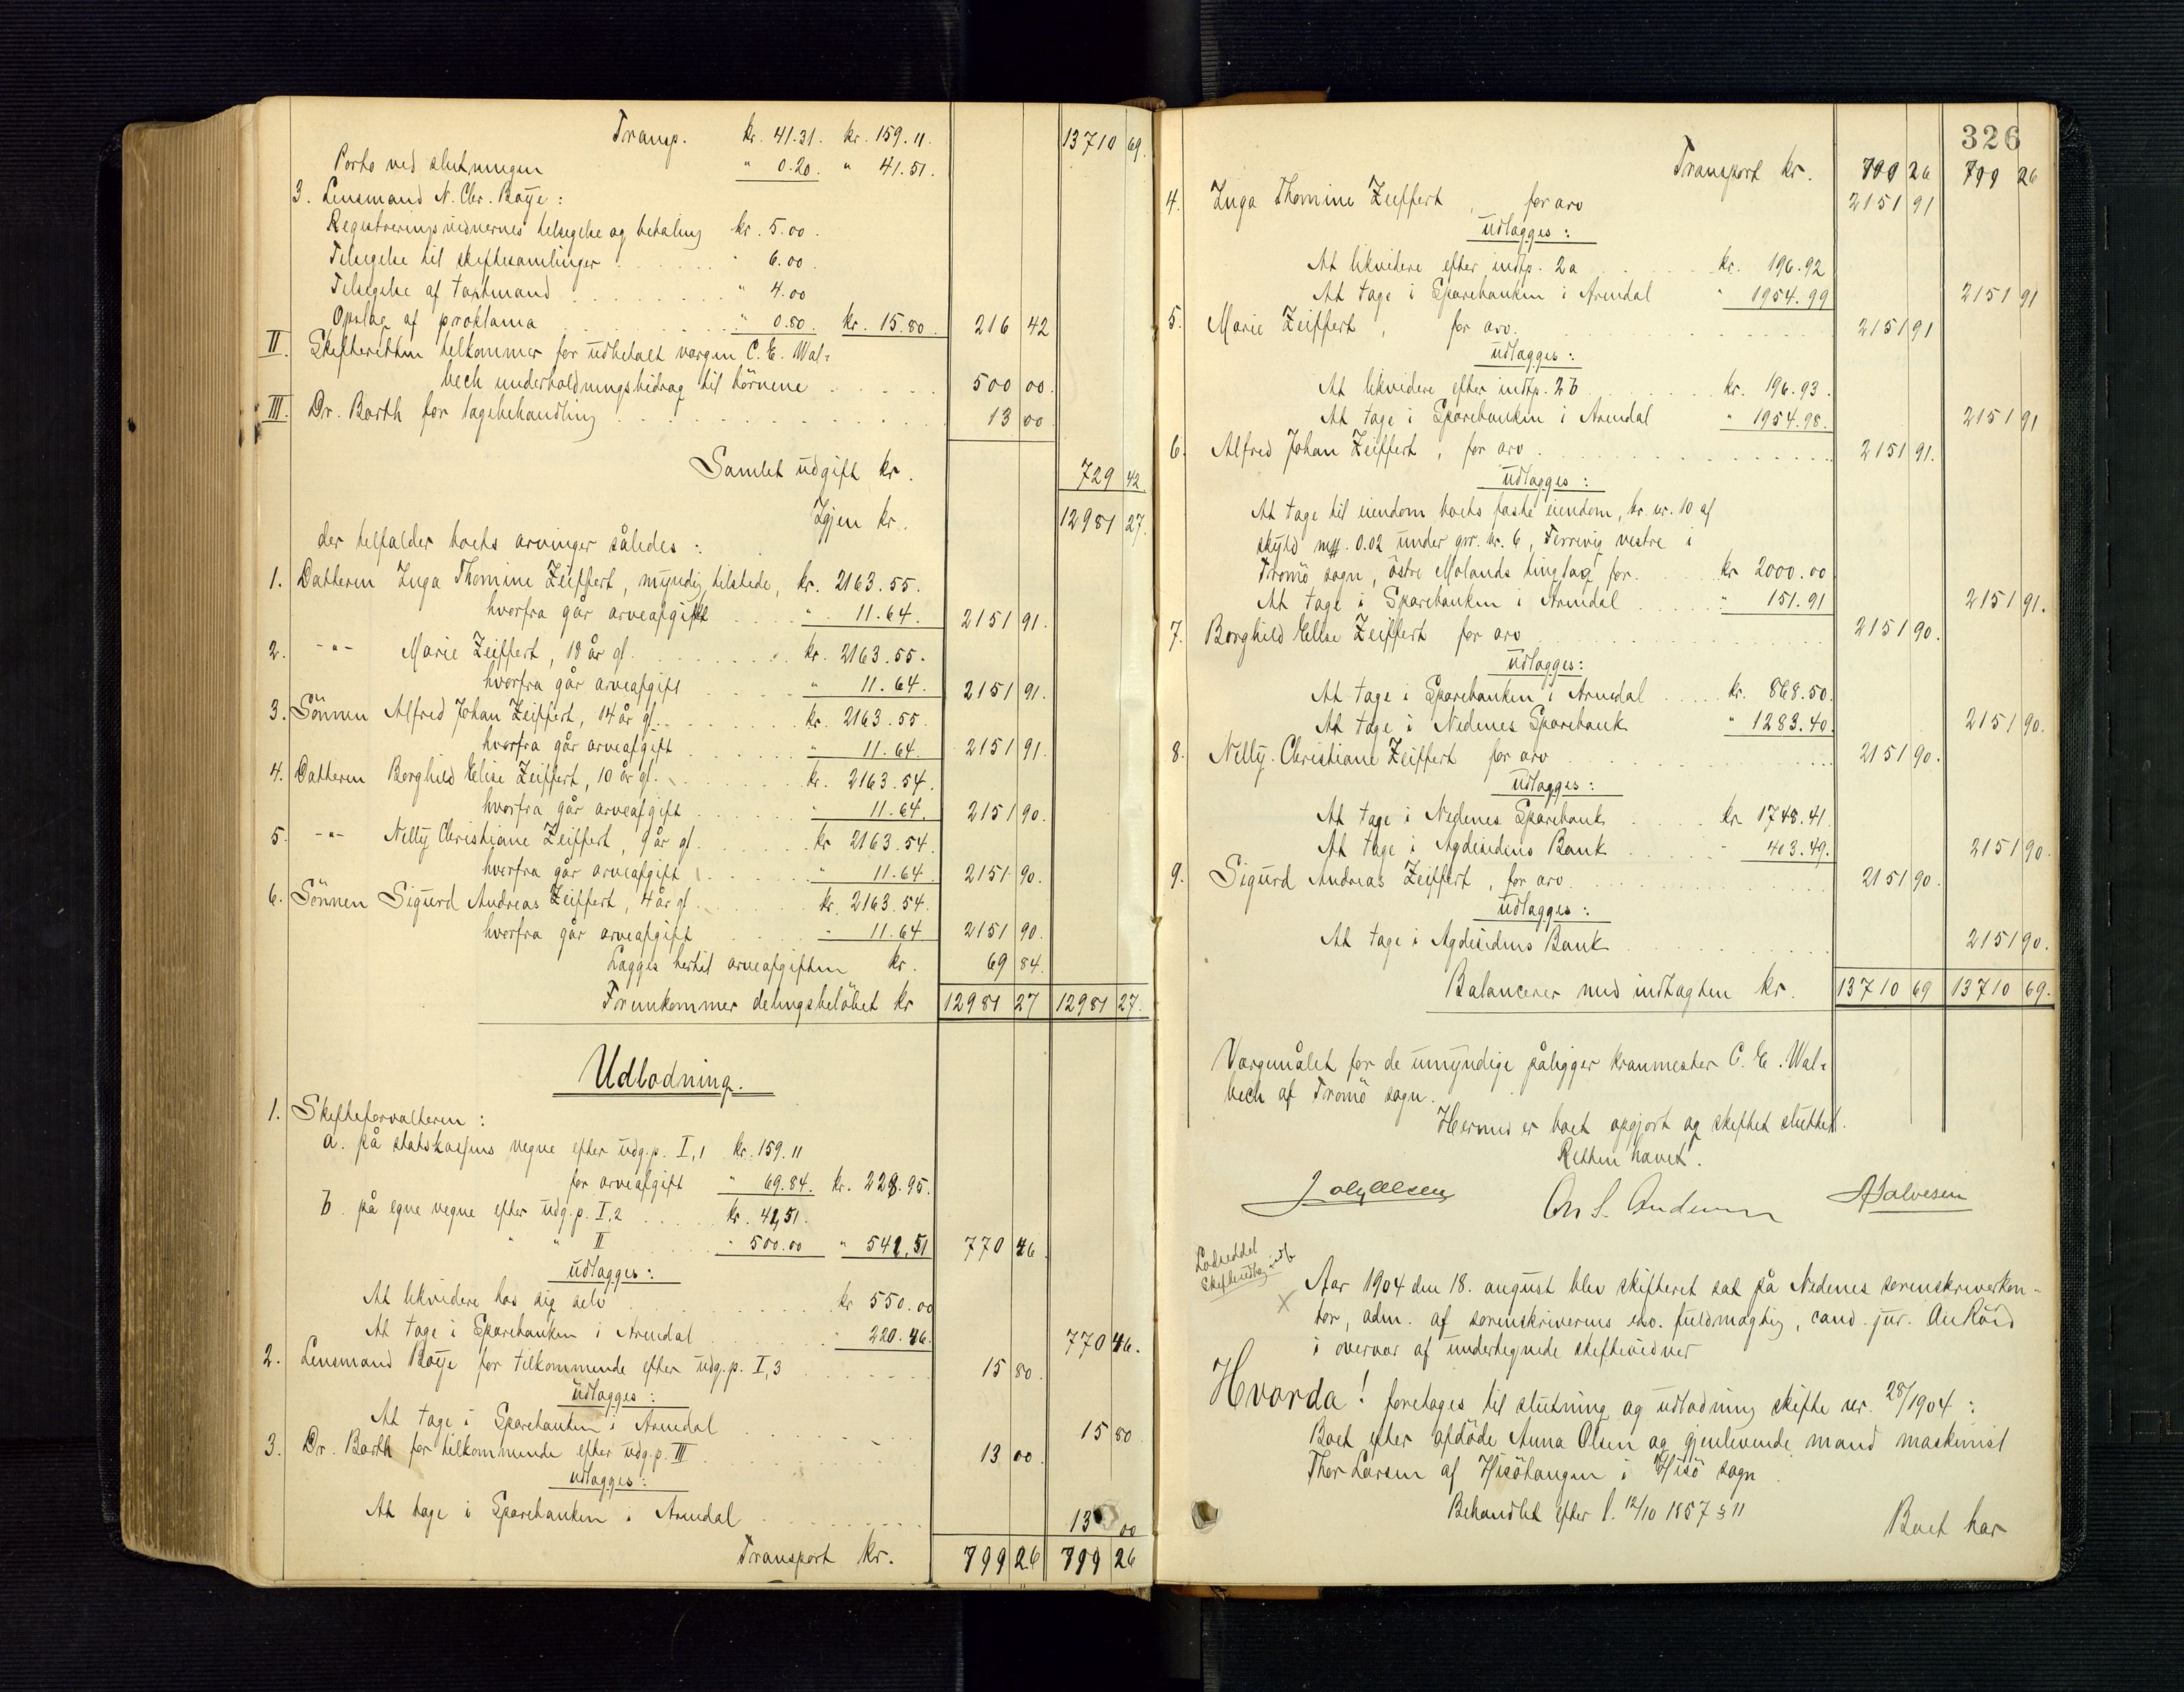 Transp. kr. 41.31. kr. 159.11. 13710 69.
Porto ved slutningen " 0.20. " 41.51.
3. Lensmand N. Chr. Bøye:
Registreringsvidnernes tilsigelse og betaling kr. 5.00.
Tilsigelse til skiftesamlinger " 6.00.
Tilsigelse af taxtmænd " 4.00
Opslag af proklama " 0.80. kr. 15.80. 216 42
II. Skifteretten tilkommer for udbetalt vergen C. E. Wal=
bech underholdningsbidrag til börnene 500 00.
III. Dr. Barth for lægebehandling 13 00
Samlet udgift kr. 729 42.
Igjen kr. 12981 27.
der tilfalder boets arvinger således:
1. Datteren Inga Thomine Zeiffert, myndig, tilstede, kr. 2163.55.
hvorfra går arveafgift " 11.64. 2151 91.
2. -"- Marie Zeiffert, 18 år gl. kr. 2163.55.
hvorfra går arveafgift " 11.64. 2151 91.
3. Sönnen Alfred Johan Zeiffert, 14 år gl. kr. 2163.55.
hvorfra går arveafgift " 11.64. 2151 91.
4. Datteren Borghild Elise Zeiffert, 10 år gl. kr. 2163.54.
hvorfra går arveafgift " 11.64. 2151 90.
5. -"- Nelly Christiane Zeiffert, 9 år gl. kr 2163.54.
hvorfra går arveafgift " 11.64. 2151 90.
6. Sönnen Sigurd Andreas Zeiffert, 4 år gl. kr. 2163.54.
hvorfra går arveafgift " 11.64 2151 90.
Lægges hertil arveafgiften kr. 69 84.
Fremkommer delingsbelöbet kr 12981 27 12981 27.
Udlodning.
1. Skifteforvalteren:
a. på statskassens vegne efter udg.p. I,1 kr. 159.11
for arveafgift " 69.84. kr. 228.95.
b. på egne vegne efter udg.p. I,2 kr. 41,51.
" " II " 500.00 " 541,51 770 46.
udlægges:
At likvidere hos sig selv kr 550.00
At tage i Sparebanken i Arendal " 220.46. 770 46.
2. Lensmand Bøye for tilkommende efter udg.p. I,3 15 80.
udlægges:
At tage i Sparebanken i Arendal 15 80
3. Dr. Barth for tilkommende efter udg.p. III 13 00
udlægges:
At tage i Sparebanken i Arendal 13 00
Transport kr. 799 26 799 26
326
Transport kr. 799 26 799 26
4. Inga Thomine Zeiffert, for arv 2151 91
udlægges:
At likvidere efter indtp. 2a kr. 196.92
At tage i Sparebanken i Arendal " 1954.99 2151 91
5. Marie Zeiffert, for arv. 2151 91
udlægges:
At likvidere efter indtp. 2b kr. 196.93.
At tage i Sparebanken i Arendal " 1954.98. 2151 91
6. Alfred Johan Zeiffert, for arv. 2151 91.
udlægges:
At tage til eiendom boets faste eiendom, br. nr. 10 af
skyld mk. 0.02 under gnr. nr. 6, Færvig vestre i
Tromö sogn, östre Molands tinglag for kr 2000.00
At tage i Sparebanken i Arendal " 151.91 2151 91.
7. Borghild Elise Zeiffert for arv 2151 90.
udlægges:
At tage i Sparebanken i Arendal kr. 868.50.
At tage i Nedenes Sparebank " 1283.40. 2151 90.
8. Nelly Christiane Zeiffert for arv 2151 90.
udlægges:
At tage i Nedenes Sparebank kr 1748.41.
At tage i Agdesidens Bank " 403.49. 2151 90.
9. Sigurd Andreas Zeiffert, for arv. 2151 90.
udlægges:
At tage i Agdesidens Bank 2151 90.
Balancerer med indtægten kr. 13710 69 13710 69.
Vergemålet for de umyndige påligger kranmester C. E. Wal=
bech af Tromö sogn.
Hermed er boet opgjort og skiftet sluttet.
Retten hævet.
Chr S. Andersen A Salvesen
Lodseddel
Skifteudtog udf.
X Aar 1904 den 18. august blev skifteret sat på Nedenes sorenskriverkon-
tor, adm. af sorenskriverens edsv. fuldmægtig, cand. jur.
i overvær af undertegnede skiftevidner
Hvorda! foretages til slutning og udlodning skifte nr. 28/1904:
Boet efter afdöde Anna Olsen og gjenlevende mand maskinist
Thor Larsen af Hisötangen i Hisö sogn.
Behandlet efter l. 12/10 1857 § 11
Boet har